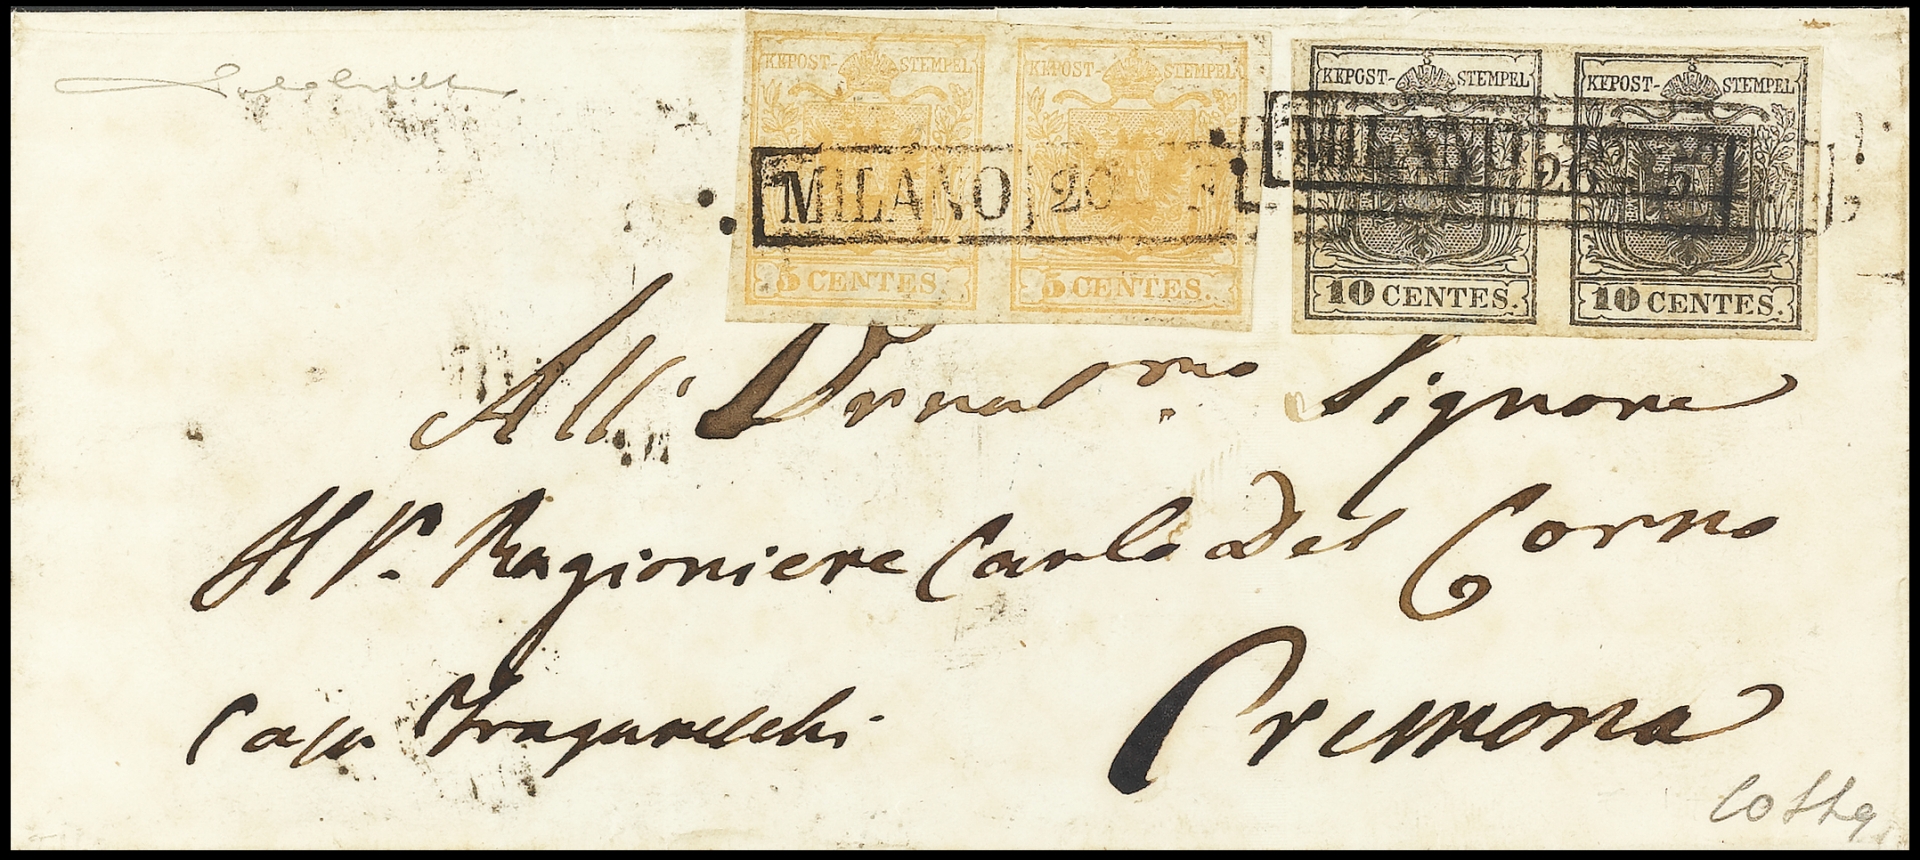 KKPOST- STEMPEL KKPOST- STEMPEL KKPOST- STEMPEL KKPOST- STEMPEL
MILANO 20 MILANO
5 CENTES. 5 CENTES. 10 CENTES. 10 CENTES.
All' Ornat.mo Signore
Il Sr. Ragioniere Carlo Del Corno
Casa
Cremona